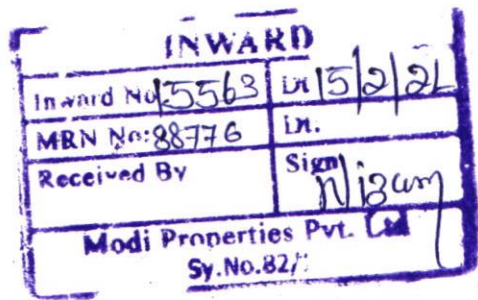 INWARD
Inward No 15563 Dt 15/2/21
MRN No: 88776 Dt.
Received By Sign Nizam
Modi Properties Pvt. Ltd
Sy.No.82/